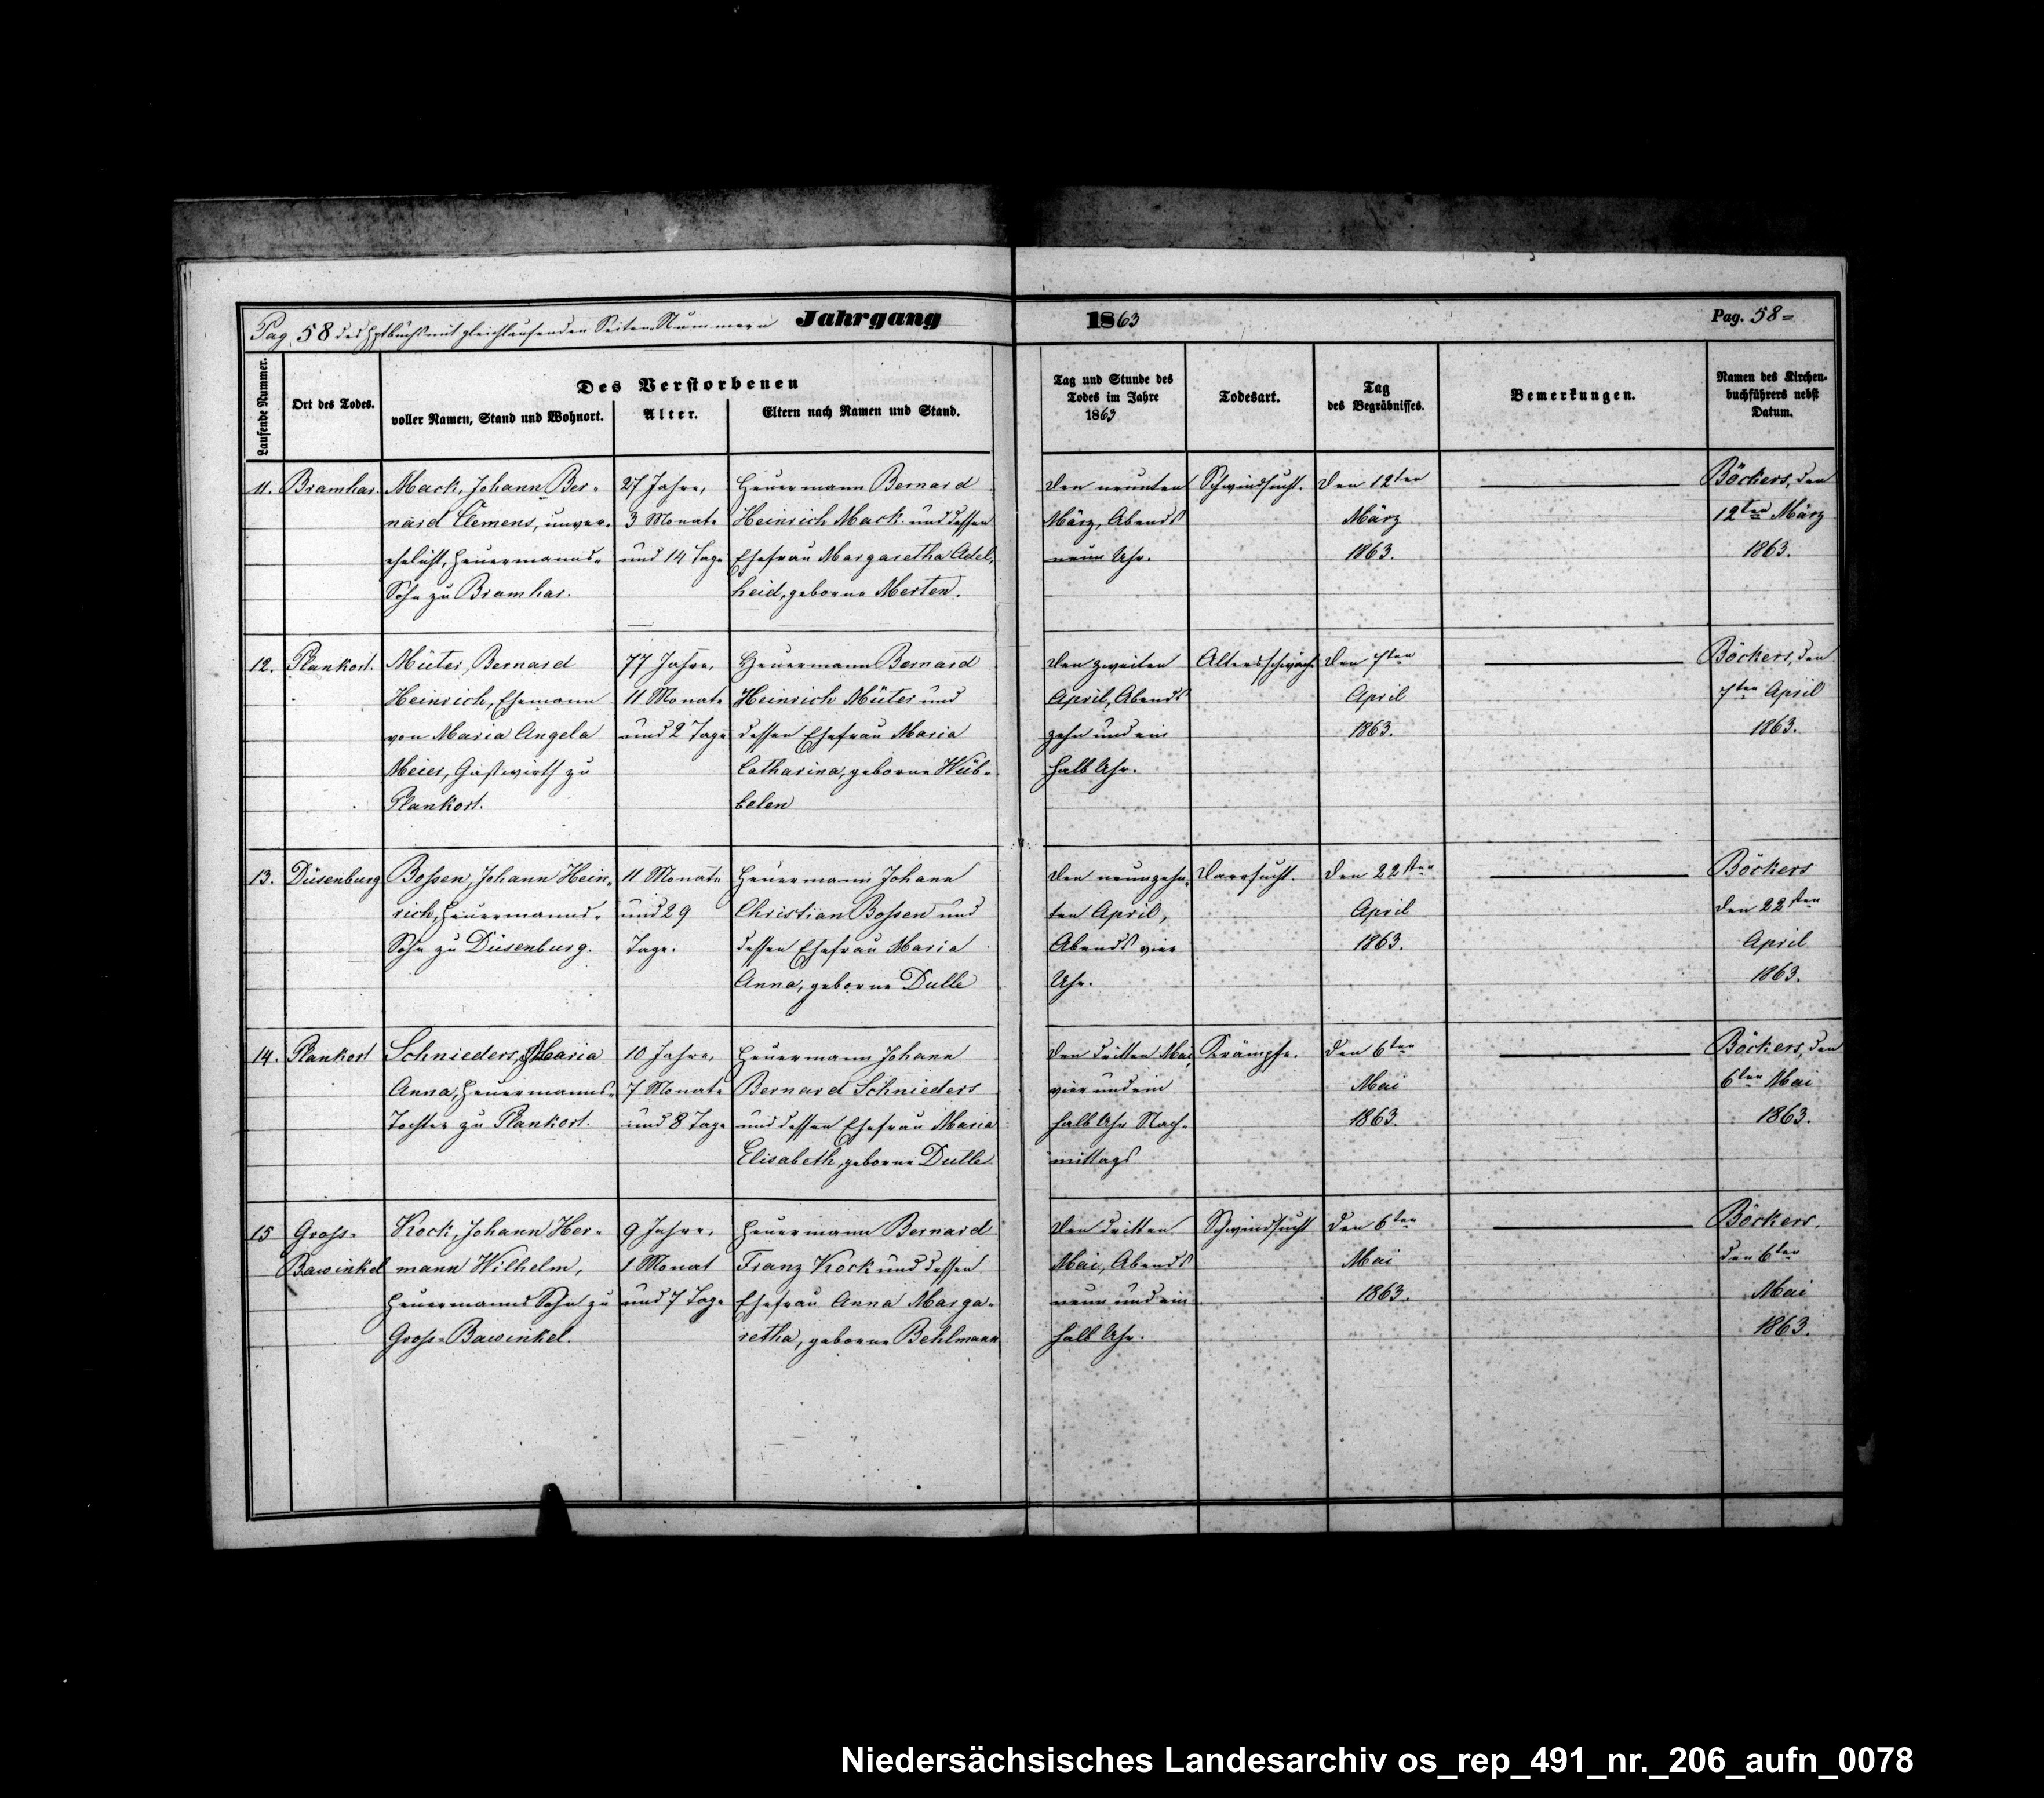 Pag. 58 des Hptbuchs mit gleichlaufenden Seiten-Nummern Jahrgang 1863 Pag. 58=
Laufende Nummer.
Ort des Todes.
Des Verstorbenen
voller Namen, Stand und Wohnort.
Alter.
Eltern nach Namen und Stand.
Tag und Stunde des
Todes im Jahre
1863
Todesart.
Tag
des Begräbnisses.
Bemerkungen.
Namen des Kirchen-
buchführers nebst
Datum.
11. Bramhar. Mack, Johann Ber- 27 Jahre, Heuermann Bernard den neunten Schwindsucht. den 12ten Böckers, den
nard Clemens, unver- 3 Monate Heinrich Mack und dessen März, Abends März 12ten März
ehelicht, Heuermanns- und 14 Tage Ehefrau Margaretha Adel- neun Uhr. 1863. 1863.
Sohn zu Bramhar. heid, geborne Merten.
12. Plankort. Müter, Bernard 77 Jahre, Heuermann Bernard den zweiten Altersschwäche den 7ten Böckers, den
Heinrich, Ehemann 11 Monate Heinrich Müter und April, Abends April 7ten April
von Maria Angela und 2 Tage dessen Ehefrau Maria zehn und ein 1863. 1863.
Meier, Gastwirth zu Catharina, geborne Wüb- halb Uhr.
Plankort. belen
13. Düsenburg Boßen, Johann Hein- 11 Monate Heuermann Johann den neunzehn- Darrsucht. den 22sten Böckers
rich, Heuermanns- und 29 Christian Boßen und ten April, April den 22sten
Sohn zu Düsenburg. Tage. dessen Ehefrau Maria Abends vier 1863. April
Anna, geborne Dulle Uhr. 1863.
14. Plankort Schnieders, Maria 10 Jahre, Heuermann Johann den dritten Mai, Krämpfe. den 6ten Böckers, den
Anna, Heuermanns- 7 Monate Bernard Schnieders vier und ein Mai 6ten Mai
Tochter zu Plankort. und 8 Tage und dessen Ehefrau Maria halb Uhr Nach- 1863. 1863.
Elisabeth, geborne Dulle mittags
15 Groß- Kock, Johann Her- 9 Jahre, Heuermann Bernard den dritten Schwindsucht den 6ten Böckers,
Bawinkel mann Wilhelm, 1 Monat Franz Kock und dessen Mai, Abends Mai den 6ten
Heuermanns Sohn zu und 7 Tage Ehefrau Anna Marga- neun und ein 1863. Mai
Groß-Bawinkel. retha, geborne Behlmann halb Uhr. 1863.
Niedersächsisches Landesarchiv os_rep_491_nr._206_aufn_0078